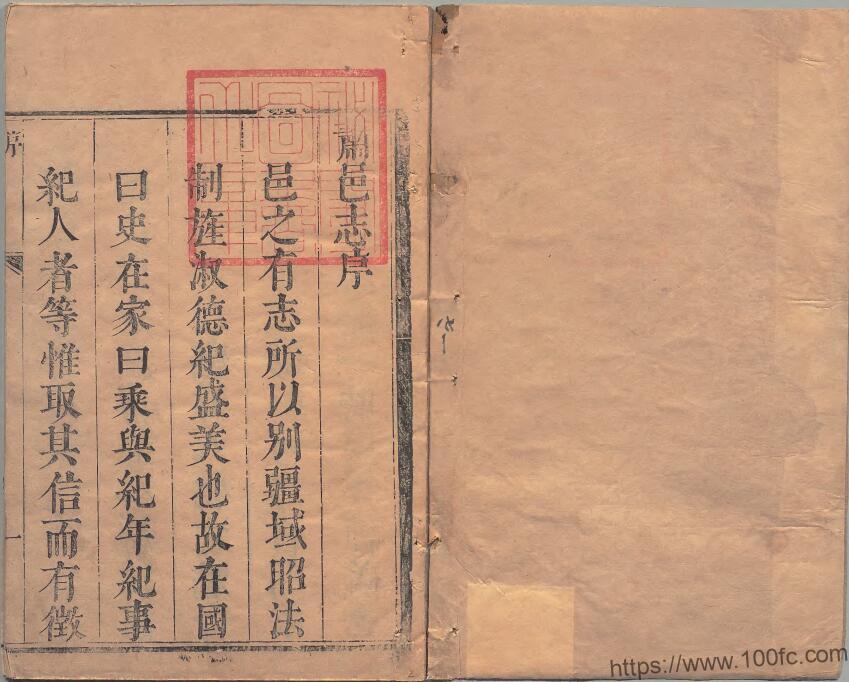 肅邑志序
邑之有志所以别疆域昭法
制旌淑德紀盛美也故在國
曰史在家曰乘與紀年紀事
紀人者等惟取其信而有徵
序
一
https://www.100fc.com